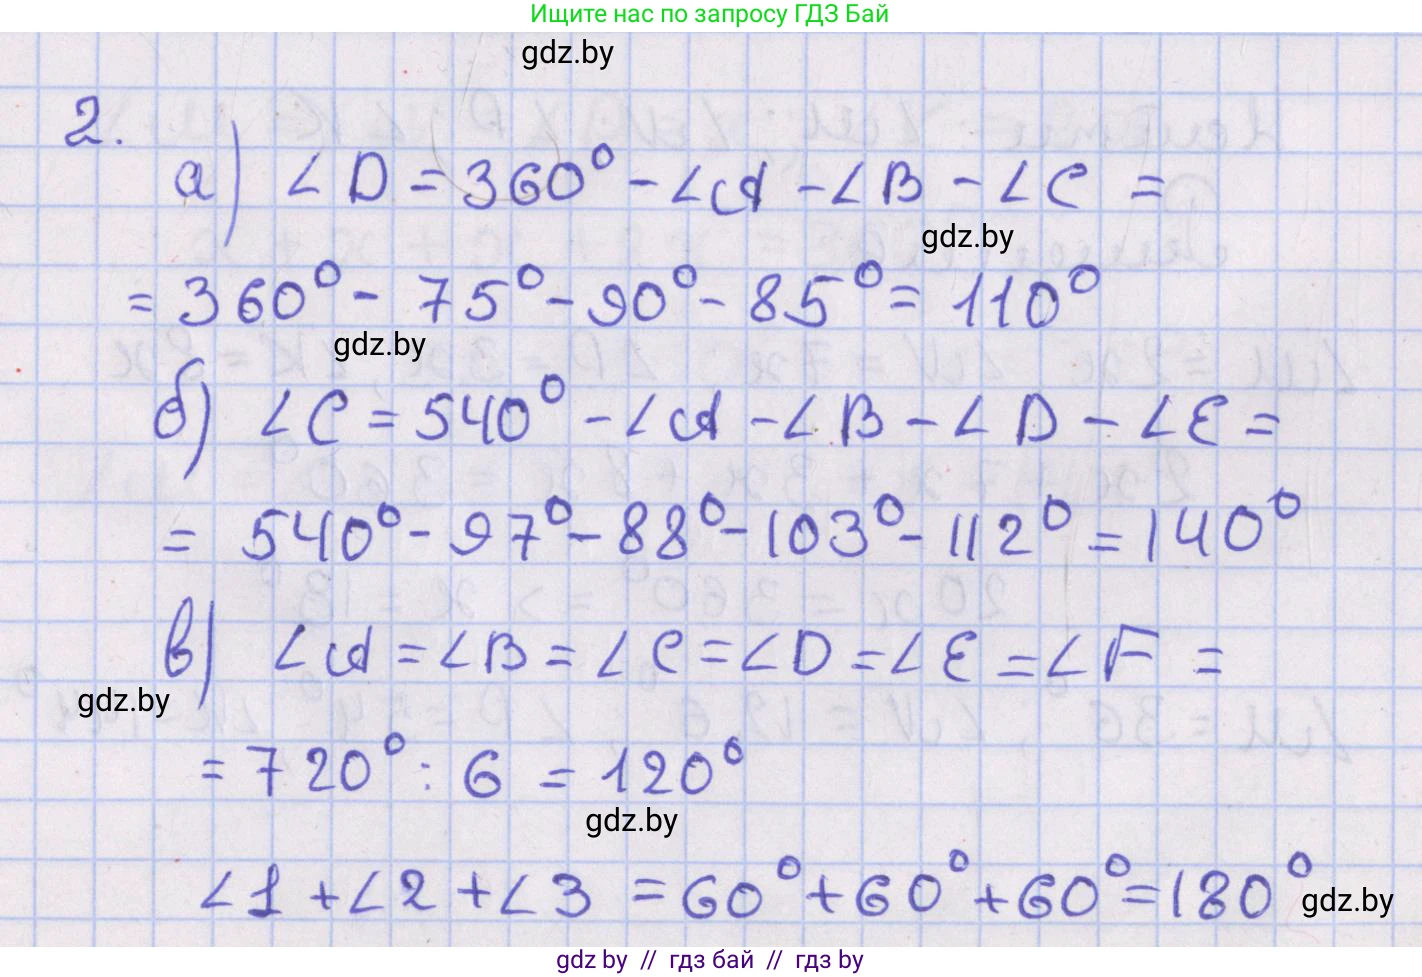 Ищите нас по запросу ГДЗ Бай
gdz.by
2.
а) ∠D = 360° - ∠A - ∠B - ∠C =
gdz.by
= 360° - 75° - 90° - 85° = 110°
gdz.by
б) ∠C = 540° - ∠A - ∠B - ∠D - ∠E =
= 540° - 97° - 88° - 103° - 112° = 140°
в) ∠A = ∠B = ∠C = ∠D = ∠E = ∠F =
gdz.by
= 720° : 6 = 120°
gdz.by
∠1 + ∠2 + ∠3 = 60° + 60° + 60° = 180°
gdz.by
gdz by // гдз бай // гдз by